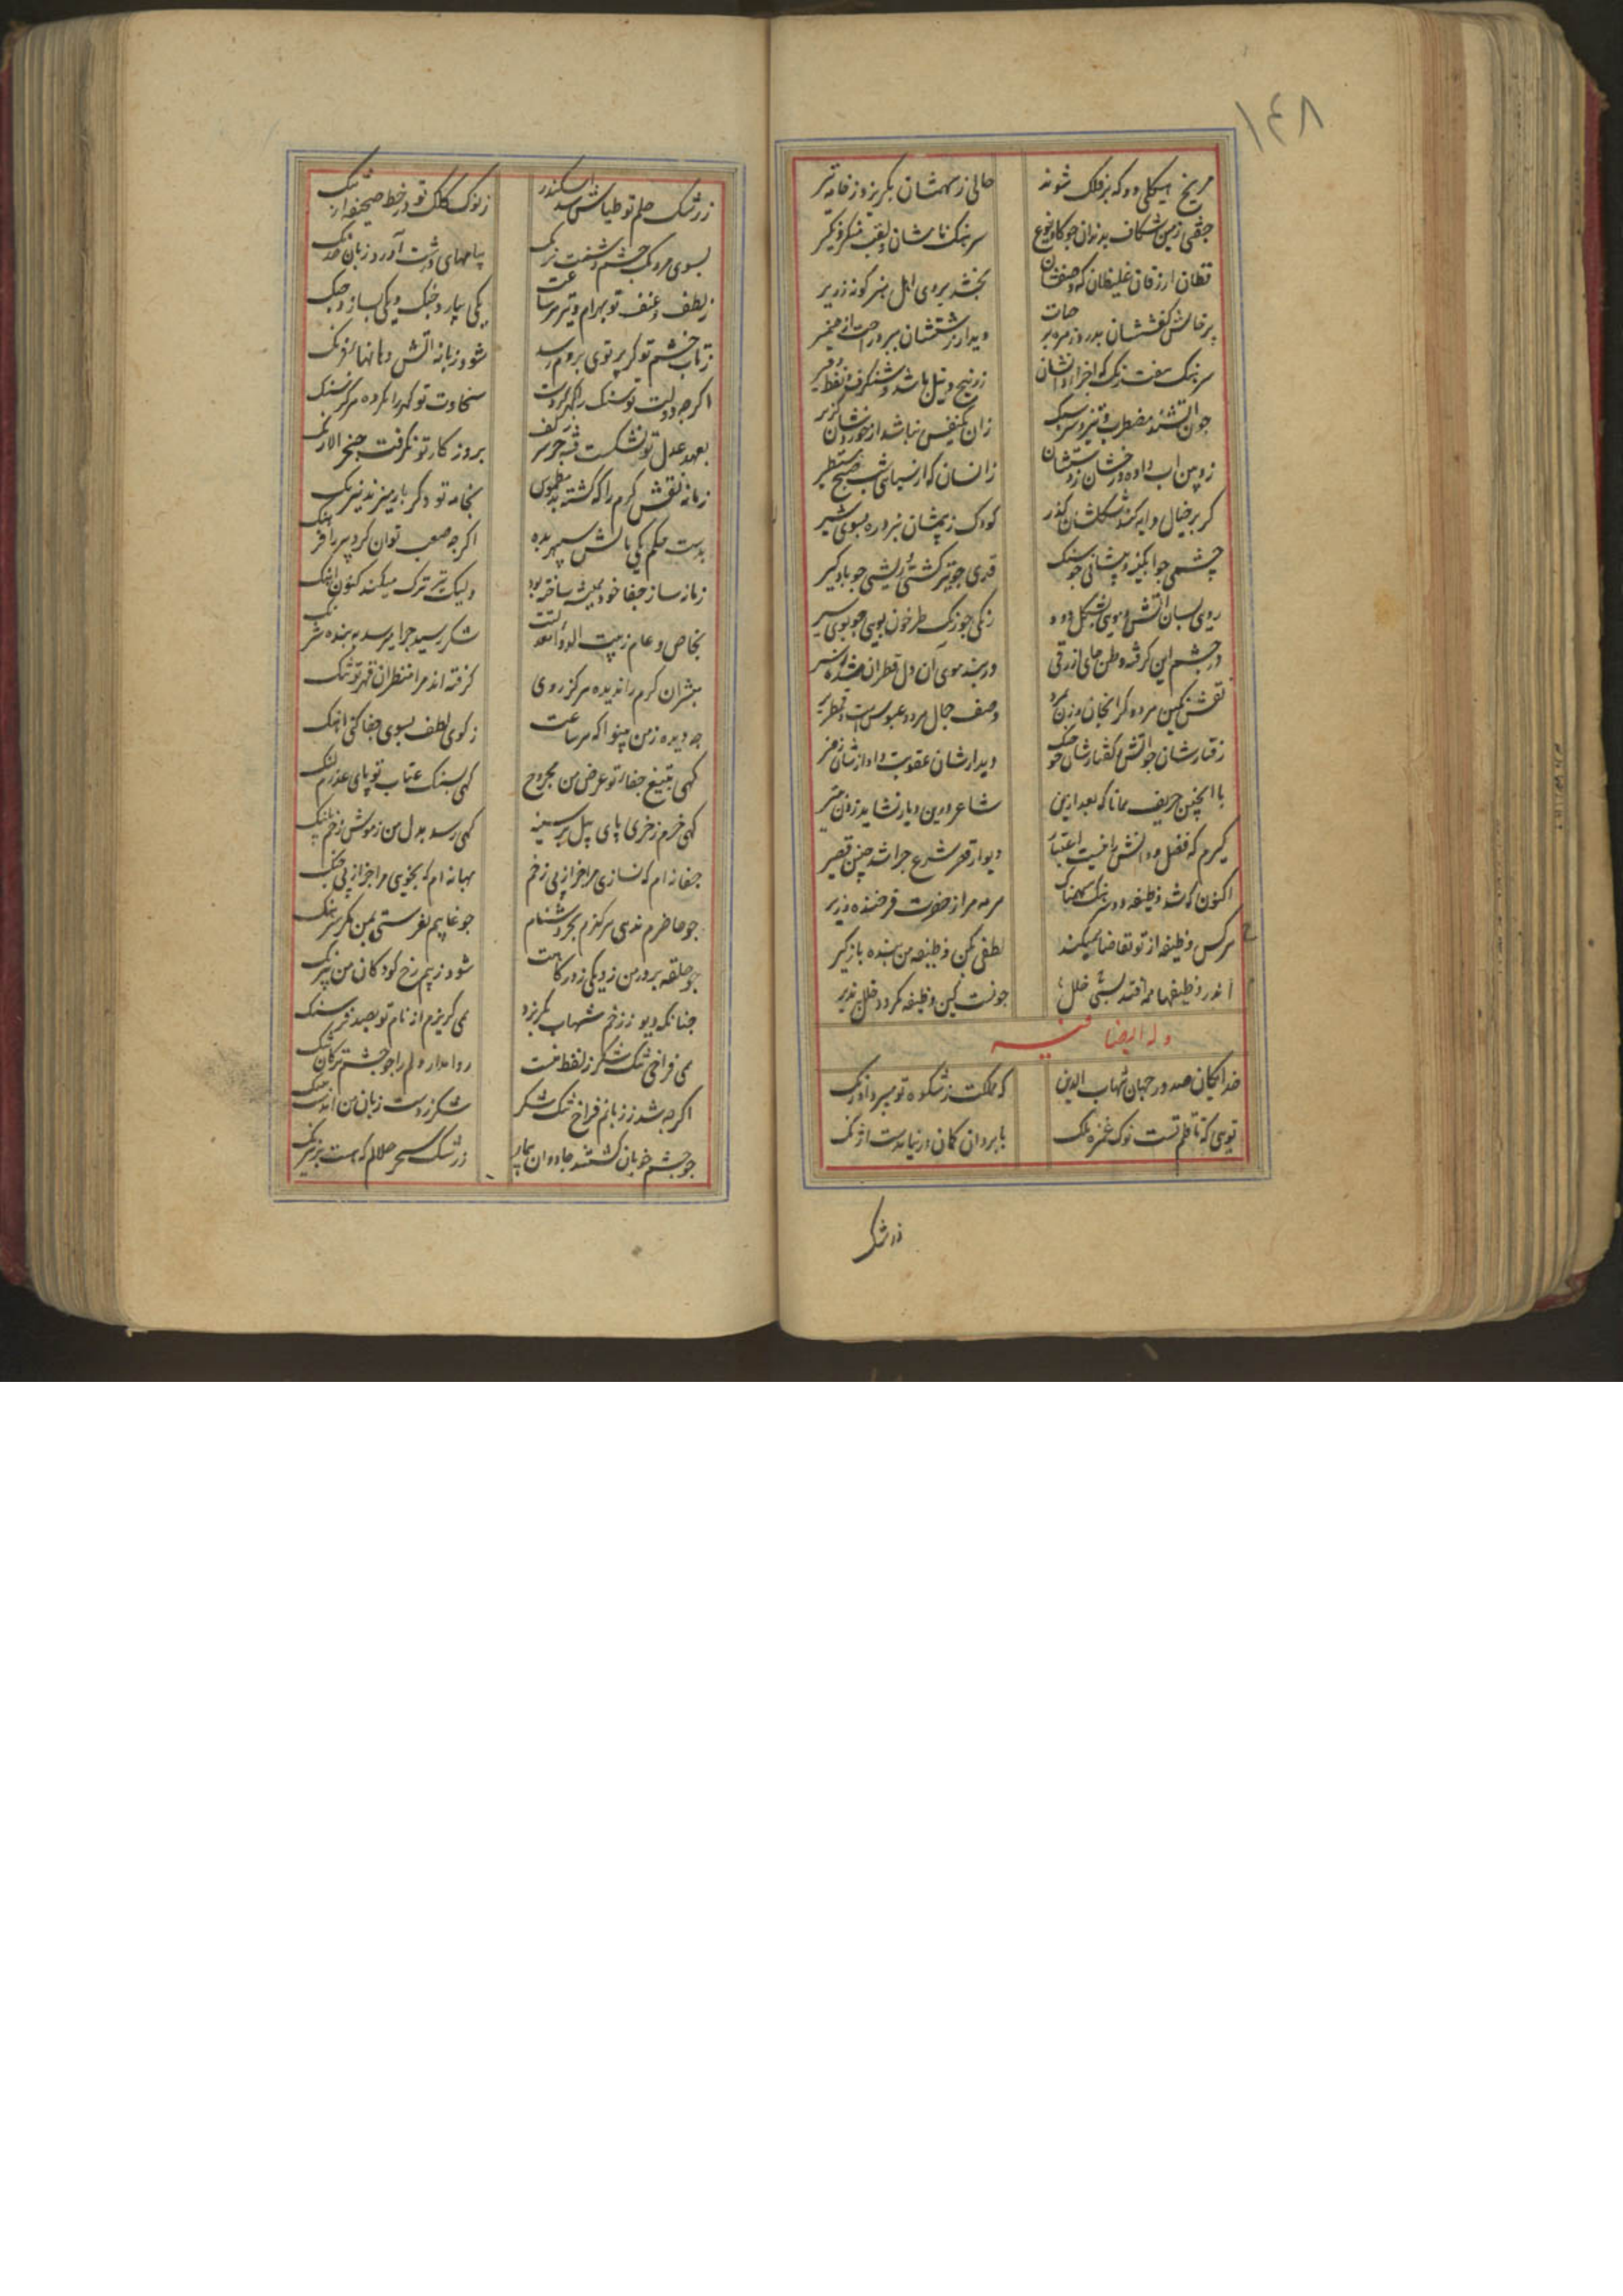 ۱۴۸
مریخ هیکلی دو که بر فلک شوند حالی ز سهمشان بگریزد ز خامه تیر
جفتی زمین شکاف بدندان جو کاو سرهنک نامشان و لقب منکر و نکیر
قطان ارزقان غلیظان که وصفشان بخشد بروی اهل هنر کونه زریر
دیدار زشتشان ببرد راحت از ضمیر
سرهنک هفت رنک که اجزاء زرنیخ و نیل باشد و شنکرف و
جون تشنه مضطرب و زان یکنفس نباشد از خوردشان
زوبین اب داده درخشان ز زانسان که از سیاهی شب صبح مستطیر
کر بر خیال دایه کند شکلشان کذر کودک ز بیمشان نبرد ره بسوی شیر
چشمی جو ابکینه و پیشانی جو سنک قدی جو تیر کشتی و ریشی جو بادکیر
روی بسان اتش و مویی بشکل دود رنکی جو رنک طرخون بویی جو بوی سیر
در چشم این کرفته وطن مای ازرقی در بند موی آن دل قطران
نقش نکین مرده کر انجان وصف جمال مرد و عبوس است و قمطریر
رفتارشان جو اتش کفتارشان جو دیدارشان عقوبت و اوازشان زفیر
با اینچنین حریف همانا که بعد ازین شاعر درین دیار نشاید زدن
کیرم که فضل و دانش را نیست اعتبار دیوار قصر شرع جرا شد چنین قصیر
اکنون که شد وظیفه دو سرهنک مر مرا از حضرت فرخنده وزیر
هرکس وظیفه از تو تقاضا همیکند لطفی بکن وظیفه من بنده بازکیر
اندر وظیفها همه افتد بشی خلل جونست کین وظیفه نکردد خلل پذیر
وله ایضا فیه
خدایکان صدور جهان شهاب الدین که مملکت ز شکوه تو میبرد اورنک
تویی که تا قلم تست نوک غمزه ملک با بروان کمان در نیامدست اژنک
ز رشک
ز رشک حلم تو طپاش شد اسکندر ز نوک کلک تو در خط صحیفه ارتنک
بسوی مردمک چشم دشمنت پیامهای درشت آورد زبان خدنک
ز لطف و عنف تو بهرام و تیر هر ساعت یکی بیارد جنک و یکی بسازد جنک
ز تاب خشم تو کر پرتوی بروم رسد شود زبانه اتش دهانهاء فرنک
اکرجه دولت تو سنک را کهر کردست سخاوت تو کهر را نکرده هرکز سنک
بعهد عدل تو نشکست قبه جز بر کف بروز کار تو نکرفت خنجر الا زنک
زمانه نقش کرم را که کشته بد مطموس بخامه تو دکر باره میزند نیرنک
بدست حکم یکی مالش سپهر بده اکرجه صعب توان کرد پیر را فرهنک
زمانه ساز جفا خود همیشه ساخته بود ولیک تیز ترک میکند کنون اهنک
بخاص و عام زبیت شکر رسید جرا میرسد به بنده شرنک
مبشران کرم را ندیده هرکز روی کرفته اند مرا منظران قهر تو تنک
جه دیده ز من بینوا که هر ساعت ز کوی لطف بسوی جفا کنی اهنک
کهی بتیغ جفا تو عرض من مجروح کهی بسنک عتاب تو پای عذرم لنک
کهی خرم زخری پای پیل بر سینه کهی رسد بدل من ز موش زخم پلنک
جفانه ام که نسازی مرا جز از پی زخم بهانه ام که نجویی مرا جز از پی جنک
جو حاضرم ندهی هرکزم بجز دشنام جو غایبم نفرستی بمن مکر سرهنک
جو حلقه بر در من زد یکی ز درکاهت شود ز بیم رخ کودکان من پر زنک
جنانکه دیو ز زخم شهاب بکریزد همی کریزم از نام تو بصد فرسنک
همی فراخی تنک شکر ز لفظ منست روا مدار دلم را جو چشم ترکان تنک
اکرجه شد ز زبانم فراخ تنک شکر شکر ز دست زبان من آمدست
جو چشم خوبان کشتند جادوان بیمار ز رشک سحر حلالم که هست پر نیرنک